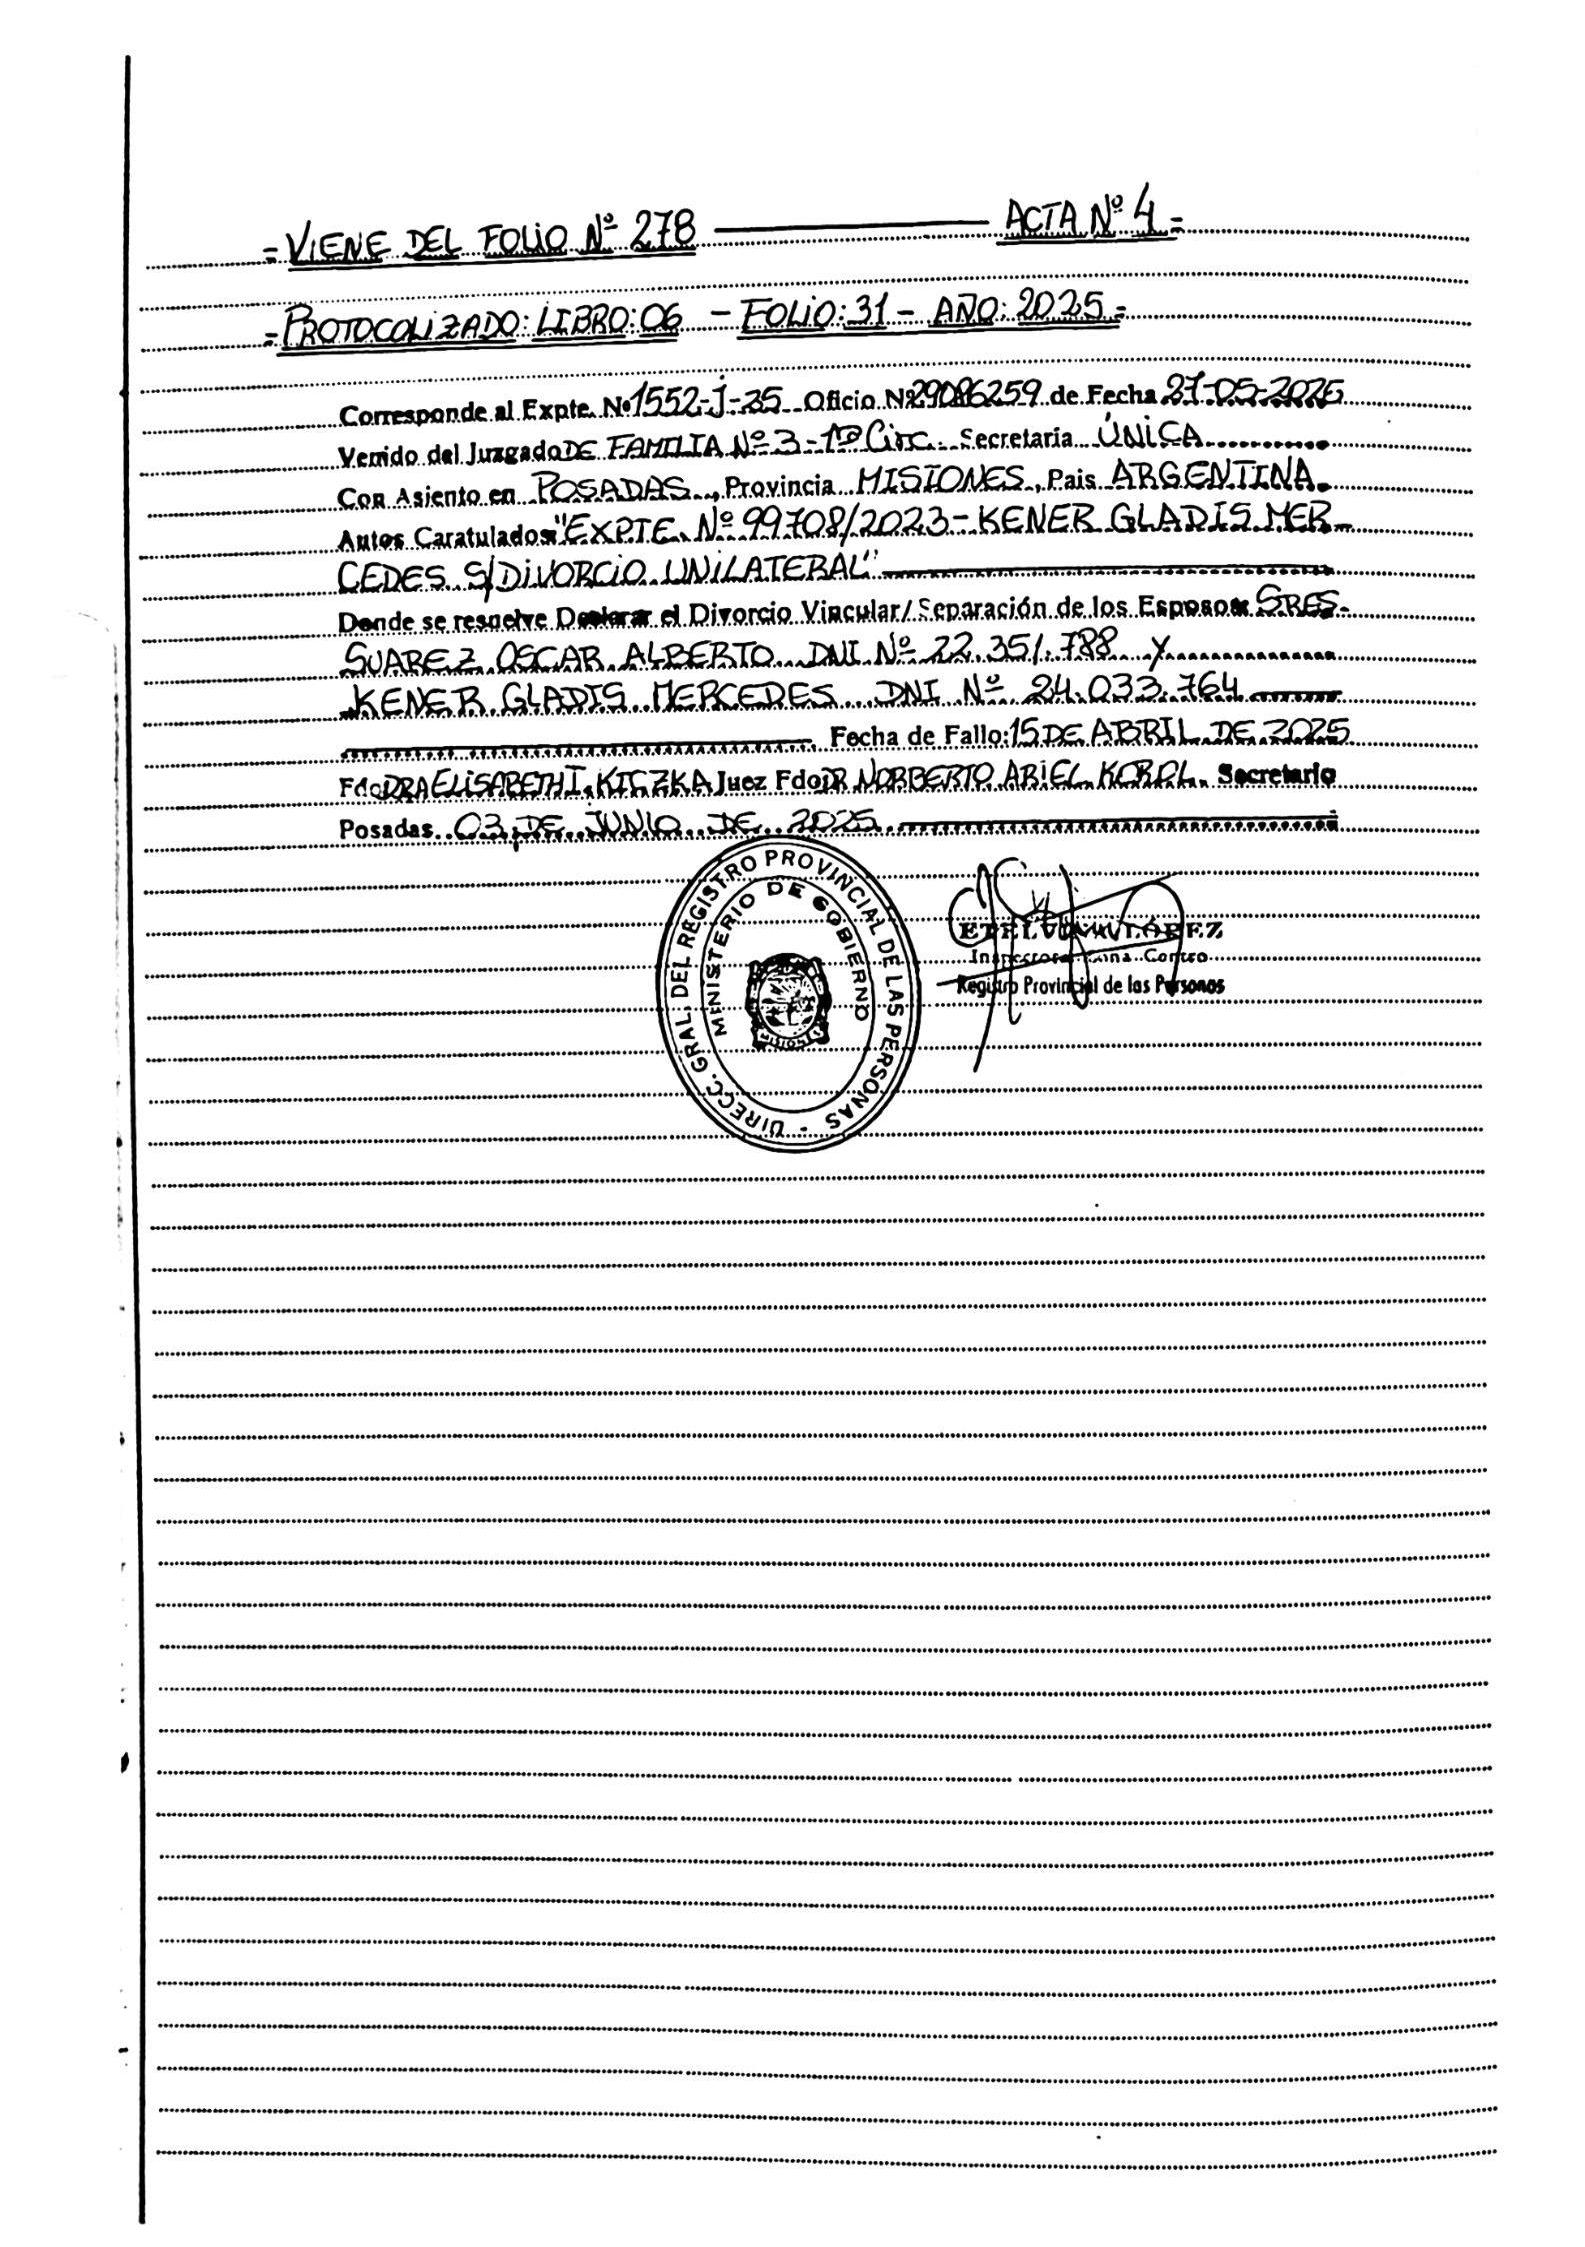 = VIENE DEL FOLIO Nº 278 ——— ACTA Nº 4 =
= PROTOCOLIZADO: LIBRO: 06 - FOLIO: 31 - AÑO: 2025 =
Corresponde al Expte. Nº 1552-J-25 Oficio Nº 29086259 de Fecha 27-05-2025
Venido del Juzgado DE FAMILIA Nº 3 - 1ª Circ. Secretaría ÚNICA
Con Asiento en POSADAS, Provincia MISIONES, Pais ARGENTINA.
Autos Caratulados: "EXPTE. Nº 99708/2023 - KENER GLADIS MER-
CEDES S/DIVORCIO UNILATERAL"
Donde se resuelve Declarar el Divorcio Vincular/Separación de los Esposos: SRES.
SUAREZ OSCAR ALBERTO DNI Nº 22.351.788 y
KENER GLADIS MERCEDES DNI Nº 24.033.764
Fecha de Fallo: 15 DE ABRIL DE 2025
Fdo DRA ELISABETH I. KICZKA Juez Fdo DR NORBERTO ARIEL Secretario
Posadas 03 DE JUNIO DE 2025
DIRECC. GRAL DEL REGISTRO PROVINCIAL DE LAS PERSONAS -
MINISTERIO DE GOBIERNO
MISIONES
ETELVINA LÓPEZ
Inspectora Zona Centro
Registro Provincial de las Personas